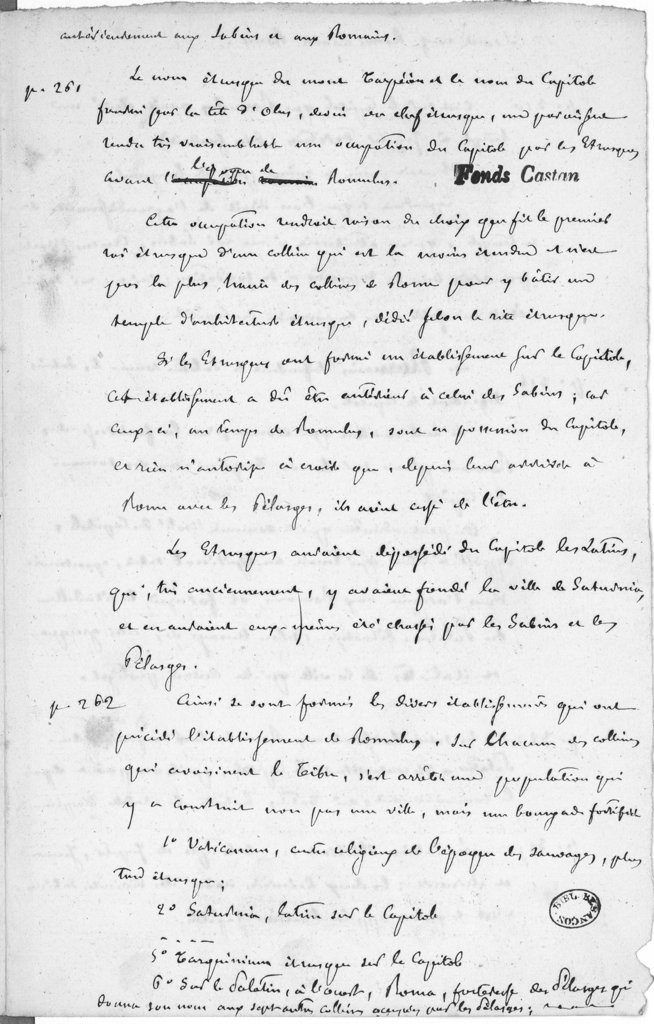 antérieurement aux Sabins et aux Romains.
p. 261
Le nom étrusque du mont Tarpéien et le nom du Capitole
fourni par la tête d'Olus, devin ou chef étrusque, me paraissent
rendre très vraisemblable une occupation du Capitole par les Etrusques
avant l'époque de Romulus.
Fonds Castan
Cette occupation rendrait raison du choix que fit le premier
roi étrusque d'une colline qui est la moins étendue et n'est
pas la plus haute des collines de Rome pour y bâtir un
temple d'architecture étrusque, dédié selon le rite étrusque.
Si les Etrusques ont formé un établissement sur le Capitole,
cet établissement a dû être antérieur à celui des Sabins ; car
ceux-ci, au temps de Romulus, sont en possession du Capitole,
et rien n'autorise à croire que, depuis leur arrivée à
Rome avec les Pélasges, ils aient cessé de l'être.
Les Etrusques auraient dépossédé du Capitole les Latins,
qui, très anciennement, y avaient fondé la ville de Saturnia,
et en auraient eux-mêmes été chassés par les Sabins et les
Pélasges.
p. 262
Ainsi se sont formés les divers établissements qui ont
précédé l'établissement de Romulus. Sur chacune des collines
qui avoisinent le Tibre, s'est arrêtée une population qui
y a construit non pas une ville, mais une bourgade fortifiée
1° Vaticanum, centre religieux de l'époque des sauvages, plus
tard étrusque.
2° Saturnia, latine sur le Capitole
5° Tarquinium étrusque sur le Capitole
BIBL. BESANÇON
6° Sur le Palatin, à l'ouest, Roma, forteresse des Pélasges qui
donna son nom aux sept autres collines occupées par les Pélasges ;